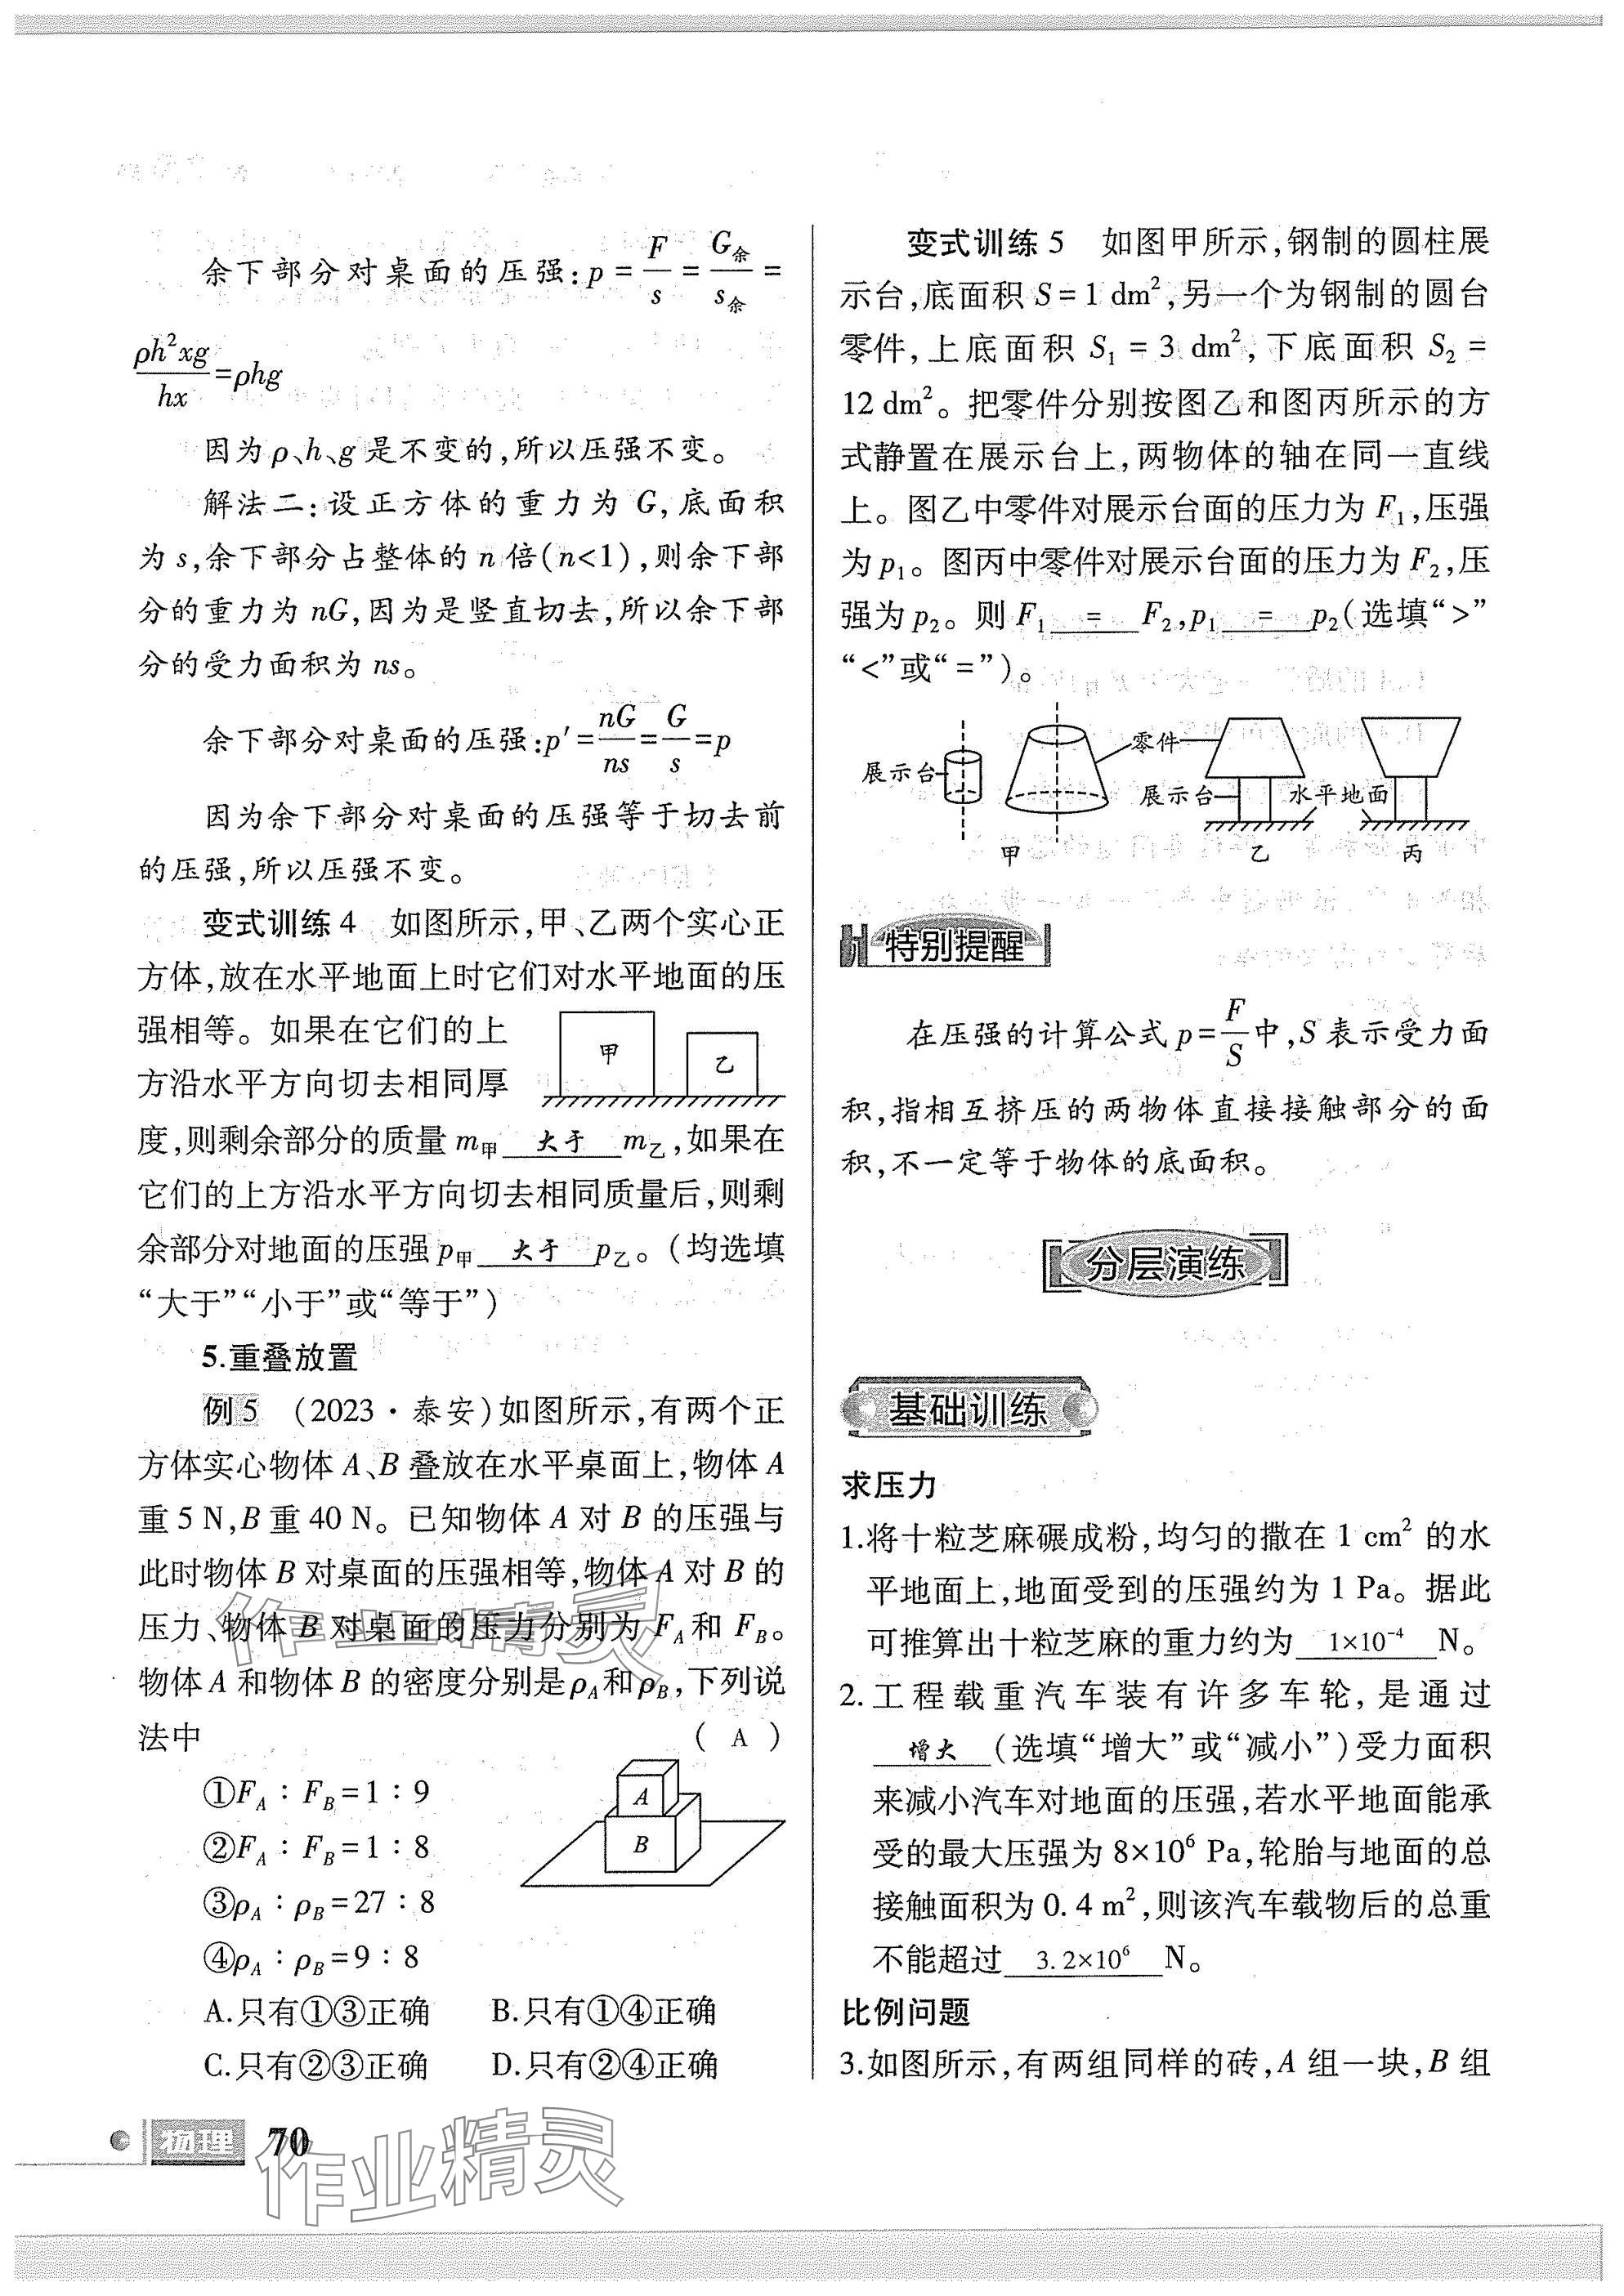 余下部分对桌面的压强:p = F/s = G余/s余 =
ρh²xg/hx=ρhg
因为ρ、h、g是不变的,所以压强不变。
解法二:设正方体的重力为 G,底面积
为 s,余下部分占整体的 n 倍(n<1),则余下部
分的重力为 nG,因为是竖直切去,所以余下部
分的受力面积为 ns。
余下部分对桌面的压强:p′=nG/ns=G/s=p
因为余下部分对桌面的压强等于切去前
的压强,所以压强不变。
变式训练 4 如图所示,甲、乙两个实心正
方体,放在水平地面上时它们对水平地面的压
强相等。如果在它们的上
方沿水平方向切去相同厚
甲
乙
度,则剩余部分的质量 m甲 大于 m乙,如果在
它们的上方沿水平方向切去相同质量后,则剩
余部分对地面的压强 p甲 大于 p乙。(均选填
“大于”“小于”或“等于”)
5.重叠放置
例 5 (2023·泰安)如图所示,有两个正
方体实心物体 A、B 叠放在水平桌面上,物体 A
重 5 N,B 重 40 N。已知物体 A 对 B 的压强与
此时物体 B 对桌面的压强相等,物体 A 对 B 的
压力、物体 B 对桌面的压力分别为 F_A 和 F_B。
物体 A 和物体 B 的密度分别是 ρ_A 和 ρ_B,下列说
法中 ( A )
①F_A∶F_B=1∶9
②F_A∶F_B=1∶8
③ρ_A∶ρ_B=27∶8
④ρ_A∶ρ_B=9∶8
A
B
A.只有①③正确 B.只有①④正确
C.只有②③正确 D.只有②④正确
变式训练 5 如图甲所示,钢制的圆柱展
示台,底面积 S=1 dm²,另一个为钢制的圆台
零件,上底面积 S₁ = 3 dm²,下底面积 S₂ =
12 dm²。把零件分别按图乙和图丙所示的方
式静置在展示台上,两物体的轴在同一直线
上。图乙中零件对展示台面的压力为 F₁,压强
为 p₁。图丙中零件对展示台面的压力为 F₂,压
强为 p₂。则 F₁ = F₂,p₁ = p₂(选填“>”
“<”或“=”)。
展示台
零件
展示台
水平地面
甲 乙 丙
特别提醒
在压强的计算公式 p=F/S中,S 表示受力面
积,指相互挤压的两物体直接接触部分的面
积,不一定等于物体的底面积。
分层演练
基础训练
求压力
1.将十粒芝麻碾成粉,均匀的撒在 1 cm² 的水
平地面上,地面受到的压强约为 1 Pa。据此
可推算出十粒芝麻的重力约为 1×10⁻⁴ N。
2.工程载重汽车装有许多车轮,是通过
增大 (选填“增大”或“减小”)受力面积
来减小汽车对地面的压强,若水平地面能承
受的最大压强为 8×10⁶ Pa,轮胎与地面的总
接触面积为 0.4 m²,则该汽车载物后的总重
不能超过 3.2×10⁶ N。
比例问题
3.如图所示,有两组同样的砖,A 组一块,B 组
物理 70
作业精灵
作业精灵